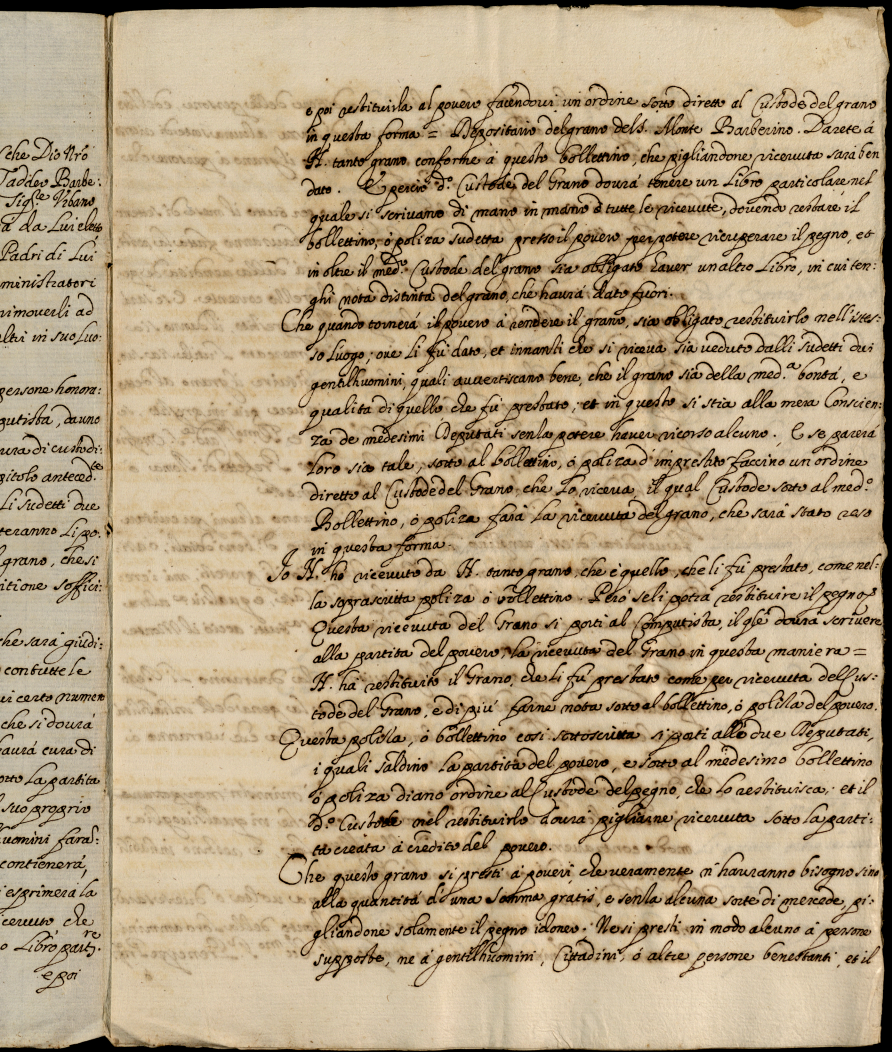 sche Dio Nro
Taddeo Barbe:
Sigre Vrbano
a da Lui eletto
Padri di Lui
ministratori
rimoverli ad
altri in suo luo:
persone honora:
putista, da uno
cura di custodi:
pitolo anteced.te
Li sudetti due
teranno Li po:
l grano, che si
itione soffici:
che sarà giudi:
contutte le
ui certo numero
che si dourà
haurà cura di
sotto la partita
l suo proprio
huomini fara.:
contienerà,
esprimerà la
iceuuto che
o Libro partre.
e poi
e poi restituirla al pouero facendoui un'ordine sotto diretto al Custode del grano
in questa forma = Depositario del grano del S. Monte Barberino. Darete à
N. tanto grano conforme à questo bollettino, che pigliandone riceuuta sarà ben
dato. E perciò d.o Custode del Grano dourà tenere un Libro particolare nel
quale si scriuano di mano in mano tutte le riceuute, douendo restare il
bollettino, ò poliza sudetta presso il pouero per potere ricuperare il pegno, et
in oltre il med.o Custode del grano sia obligato hauer un altro Libro, in cui ten:
ghi nota distinta del grano, che haurà dato fuori.
Che quando tornerà il pouero à rendere il grano, sia obligato restituirlo nell'istes:
so luogo, oue li fù dato, et innanti che si riceua sia ueduto dalli sudetti dui
gentilhuomini, quali auuertiscano bene, che il grano sia della med.a bontà, e
qualità di quello che fù prestato, et in questo si stia alla mera Conscien:
za de medesimi Deputati senza potere hauer ricorso alcuno. E se parerà
loro sia tale, sotto al bollettino, ò poliza d'imprestito faccino un ordine
diretto al Custode del Grano che Lo riceua, il qual Custode sotto al med.o
Bollettino, ò poliza farà La riceuuta del grano, che sarà stato reso
in questa forma.
Io N. hò riceuuto da N. tanto grano, che è quello, che li fù prestato, come nel:
la soprascritta poliza ò bollettino. Però seli potrà restituire il pegno
Questa riceuuta del Grano si porti al Computista, il qle dourà scriuere
alla partita del pouero, la riceuuta del Grano in questa maniera =
N. hà restituito il Grano, che li fù prestato come per riceuuta del Cus:
tode del Grano, e di più farne nota sotto al bollettino, ò polisa del pouero.
Questa polisa, ò bollettino cosi sottoscritta si porti alle due Deputati,
i quali saldino la partita del pouero, e sotto al medesimo bollettino
ò poliza diano ordine al Custode del pegno, che lo restituisca, et il
d.o Custode nel restituirlo dourà pigliarne riceuuta sotto la parti:
ta creata à credito del pouero.
Che questo grano si presti à poueri, che ueramente n'hauranno bisogno sino
alla quantità di una Somma gratis, e senza alcuna sorte di mercede, pi:
gliandone solamente il pegno idoneo. Ne si presti in modo alcuno à persone
supposte, ne à gentilhuomini, Cittadini, ò altre persone benestanti, et il